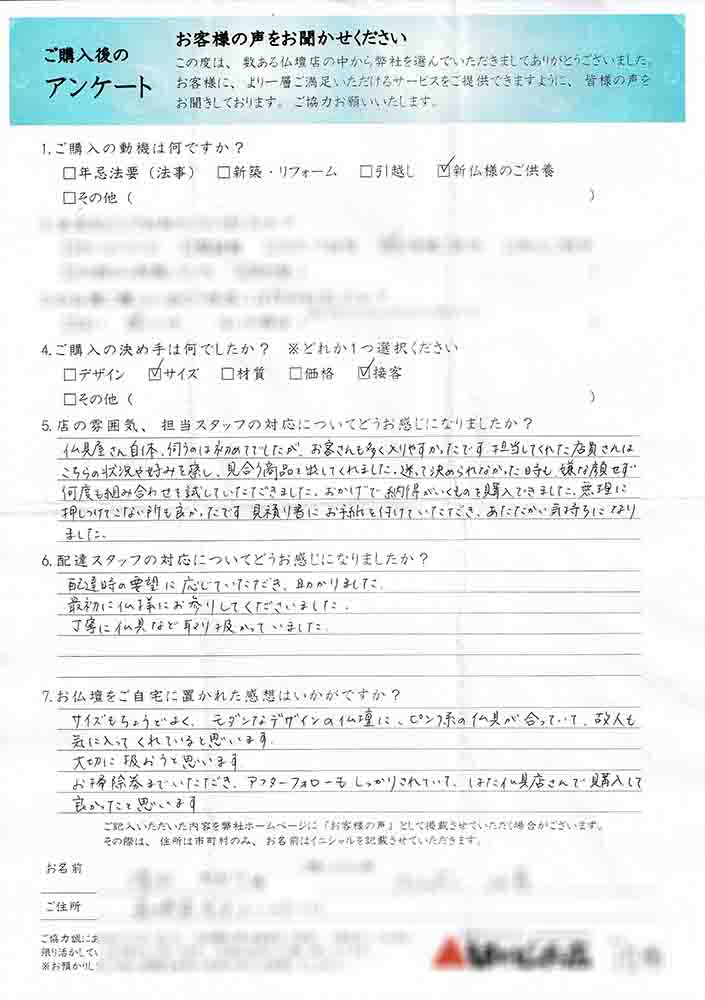 ご購入後の
アンケート
お客様の声をお聞かせください
この度は、数ある仏壇店の中から弊社を選んでいただきましてありがとうございました。
お客様に、より一層ご満足いただけるサービスをご提供できますように、皆様の声を
お聞きしております。ご協力お願いいたします。
1.ご購入の動機は何ですか?
□年忌法要(法事) □新築・リフォーム □引越し ☑新仏様のご供養
□その他( )
4.ご購入の決め手は何でしたか? ※どれか1つ選択ください
□デザイン ☑サイズ □材質 □価格 ☑接客
□その他( )
5.店の雰囲気、担当スタッフの対応についてどうお感じになりましたか?
仏具屋さん自体、伺うのは初めてでしたが、お客さんも多く入りやすかったです。担当してくれた店員さんは
こちらの状況や好みを察し、見合う商品を出してくれました。迷って決められなかった時も、嫌な顔せず
何度も組み合わせを試していただきました。おかげで納得がいくものを購入できました。無理に
押しつけてこない所も良かったです。見積り書にお手紙を付けていただき、あたたかい気持ちになり
ました。
6.配達スタッフの対応についてどうお感じになりましたか?
配達時の要望に応じていただき、助かりました。
最初に仏様にお参りしてくださいました。
丁寧に仏具など取り扱かっていました。
7.お仏壇をご自宅に置かれた感想はいかがですか?
サイズもちょうどよく、モダンなデザインの仏壇に、ピンク系の仏具が合っていて、故人も
気に入ってくれていると思います。
大切に扱おうと思います。
お掃除券までいただき、アフターフォローもしっかりされていて、はた仏具店さんで購入して
良かったと思います。
ご記入いただいた内容を弊社ホームページに「お客様の声」として掲載させていただく場合がございます。
その際は、住所は市町村のみ、お名前はイニシャルを記載させていただきます。
お名前
ご住所
ご協力誠にあ
限り活かしてい
※お預かりし